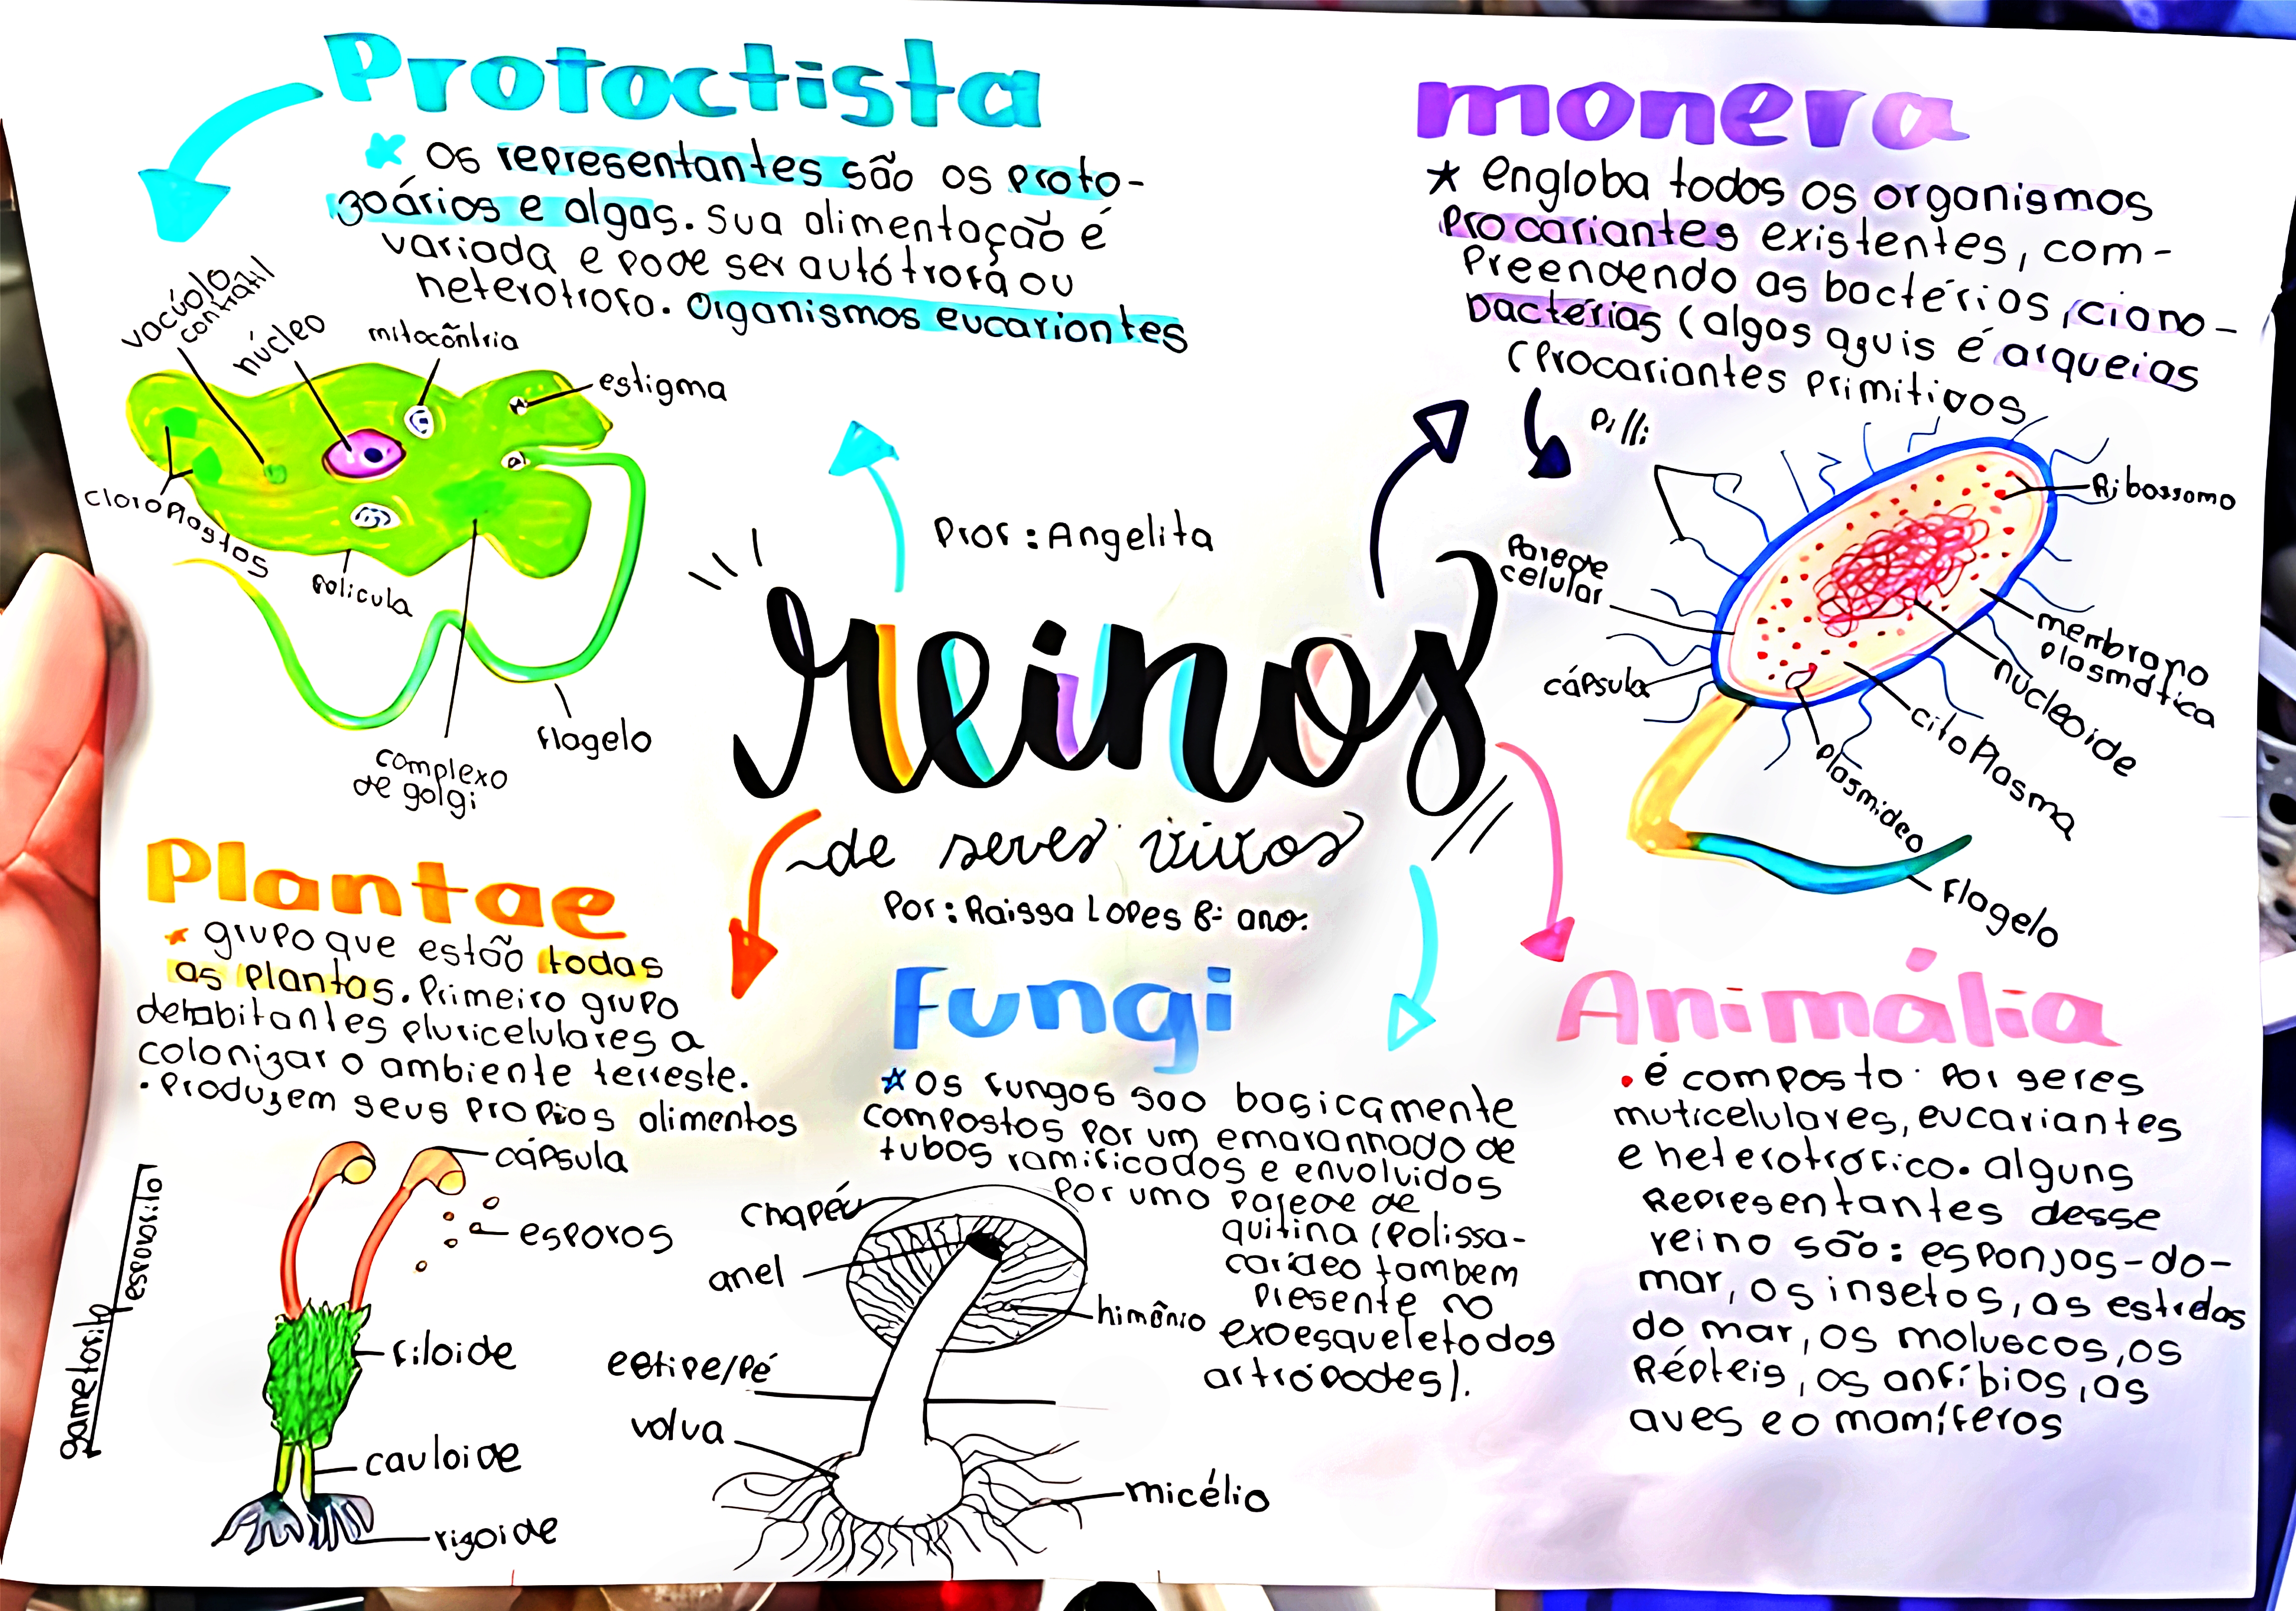 Protoctista
Os representantes são os proto-
zoários e algas. Sua alimentação é
variada e pode ser autótrofa ou
heterotrofa. Organismos eucariontes
vacúolo
contrátil
núcleo
mitocôntria
estigma
cloroplastos
pelicula
complexo
de golgi
flagelo
monera
engloba todos os organismos
procariantes existentes, com-
preendendo as bactérias, ciano-
bactérias (algas aguis é arqueias
(Procariantes primitivos
Pilli
Ribossomo
Parede
celular
cápsula
membrana
plasmática
núcleoide
citoplasma
plasmideo
flagelo
Prof: Angelita
reinos
de seres vivos
Por: Raissa Lopes 8º ano.
Plantae
grupo que estão todas
as plantas. Primeiro grupo
de habitantes pluricelulares a
colonizar o ambiente terreste.
• Produzem seus propios alimentos
cápsula
esporos
filoide
cauloide
rizoide
esporofito
gametofito
Fungi
Os fungos sao basicamente
compostos por um emaranhado de
tubos ramificados e envolvidos
por uma parede de
quitina (polissa-
carideo tambem
presente no
exoesqueleto dos
artrópodes).
chapéu
anel
himênio
estipe/pé
volva
micélio
Animália
• é composto por seres
muticelulares, eucariantes
e heterotrofico. alguns
Representantes desse
reino são: esponjas-do-
mar, os insetos, as estrelas
do mar, os moluscos, os
Répteis, os anfíbios, as
aves e o mamíferos